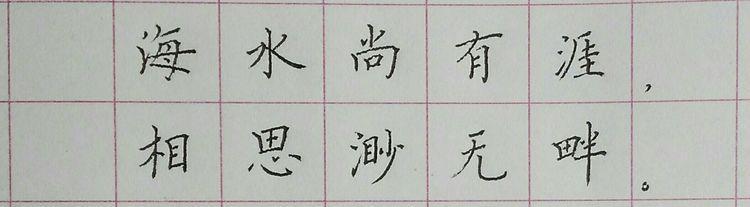 海水尚有涯，
相思渺无畔。